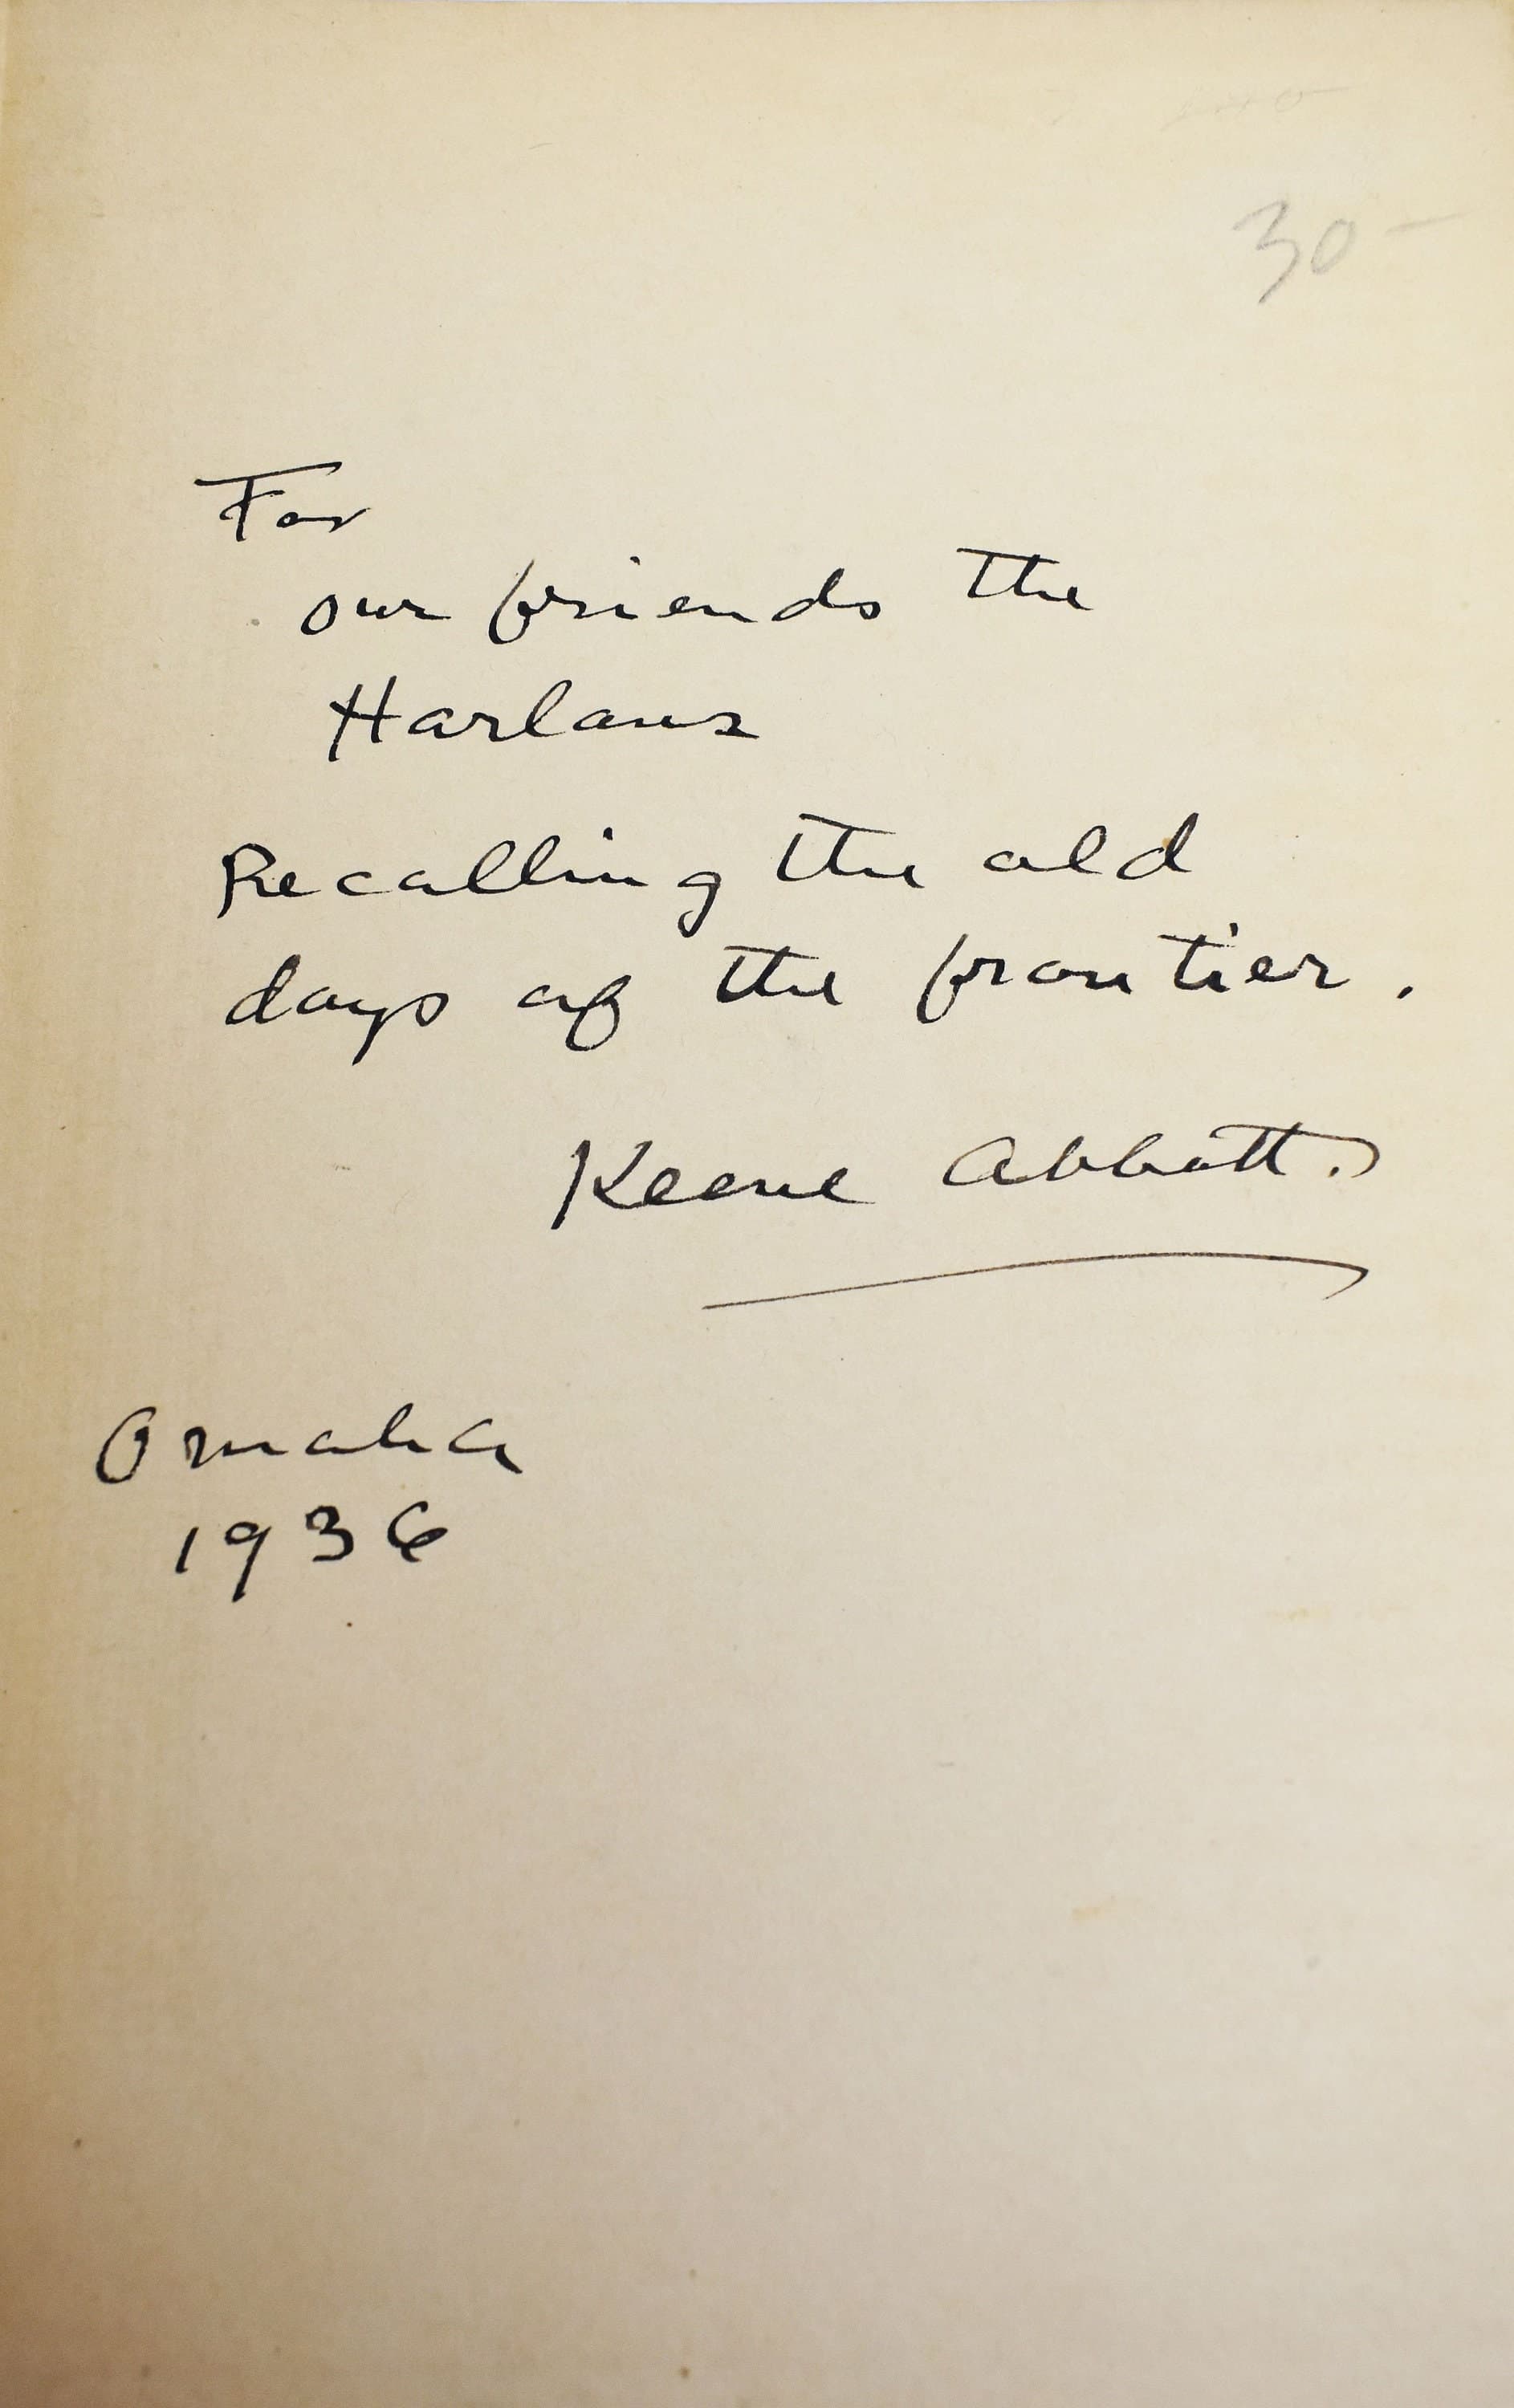 30-
For
our friends the
Harlans
Recalling the old
days of the frontier.
Keene Abbott.
Omaha
1936